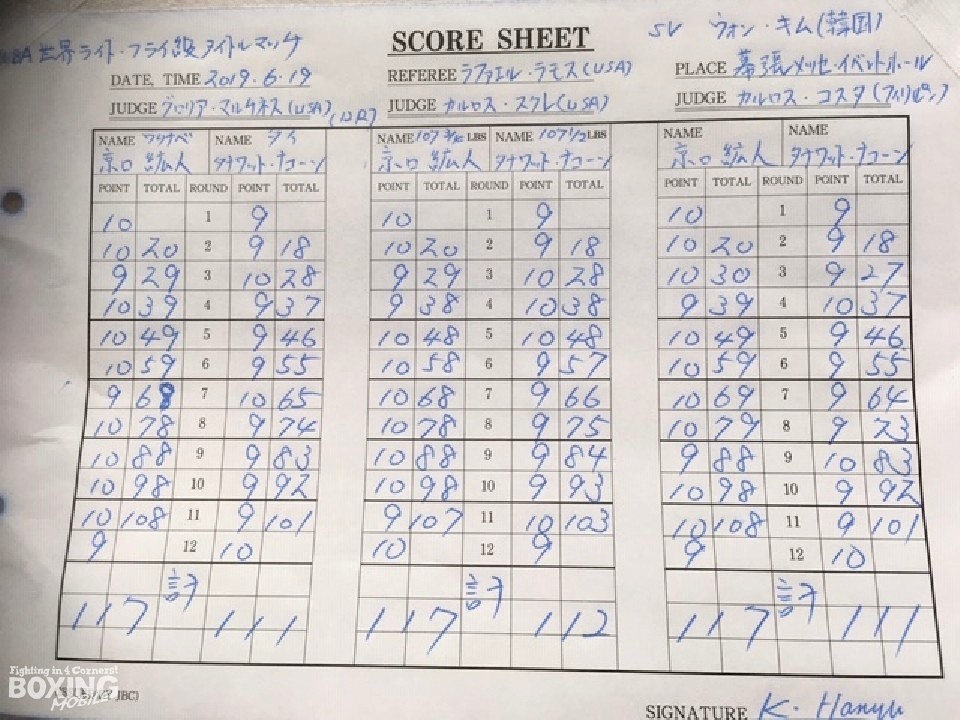 世界ライト・フライ級タイトルマッチ
SCORE SHEET
SV ウォン・キム(韓国)
DATE, TIME 2019.6.19
REFEREE ラファエル・ラモス(USA)
PLACE 幕張メッセ・イベントホール
JUDGE グロリア・マルチネス(USA)
JUDGE カルロス・スクレ(USA)
JUDGE カルロス・コスタ(フィリピン)
NAME ワタナベ NAME タイ NAME 107 LBS NAME 107 1/2 LBS NAME NAME
京口 紘人 タナワット・ナコーン 京口 紘人 タナワット・ナコーン 京口 紘人 タナワット・ナコーン
POINT TOTAL ROUND POINT TOTAL POINT TOTAL ROUND POINT TOTAL POINT TOTAL ROUND POINT TOTAL
10 1 9 10 1 9 10 1 9
10 20 2 9 18 10 20 2 9 18 10 20 2 9 18
9 29 3 10 28 9 29 3 10 28 10 30 3 9 27
10 39 4 9 37 9 38 4 10 38 9 39 4 10 37
10 49 5 9 46 10 48 5 10 48 10 49 5 9 46
10 59 6 9 55 10 58 6 9 57 10 59 6 9 55
9 68 7 10 65 10 68 7 9 66 10 69 7 9 64
10 78 8 9 74 10 78 8 9 75 10 79 8 9 73
10 88 9 9 83 10 88 9 9 84 9 88 9 10 83
10 98 10 9 92 10 98 10 9 93 10 98 10 9 92
10 108 11 9 101 9 107 11 10 103 10 108 11 9 101
9 12 10 10 12 9 9 12 10
計 計 計
117 111 117 112 117 111
Fighting in 4 Corners!
BOXING
MOBILE
JBC)
SIGNATURE K. Hanyu